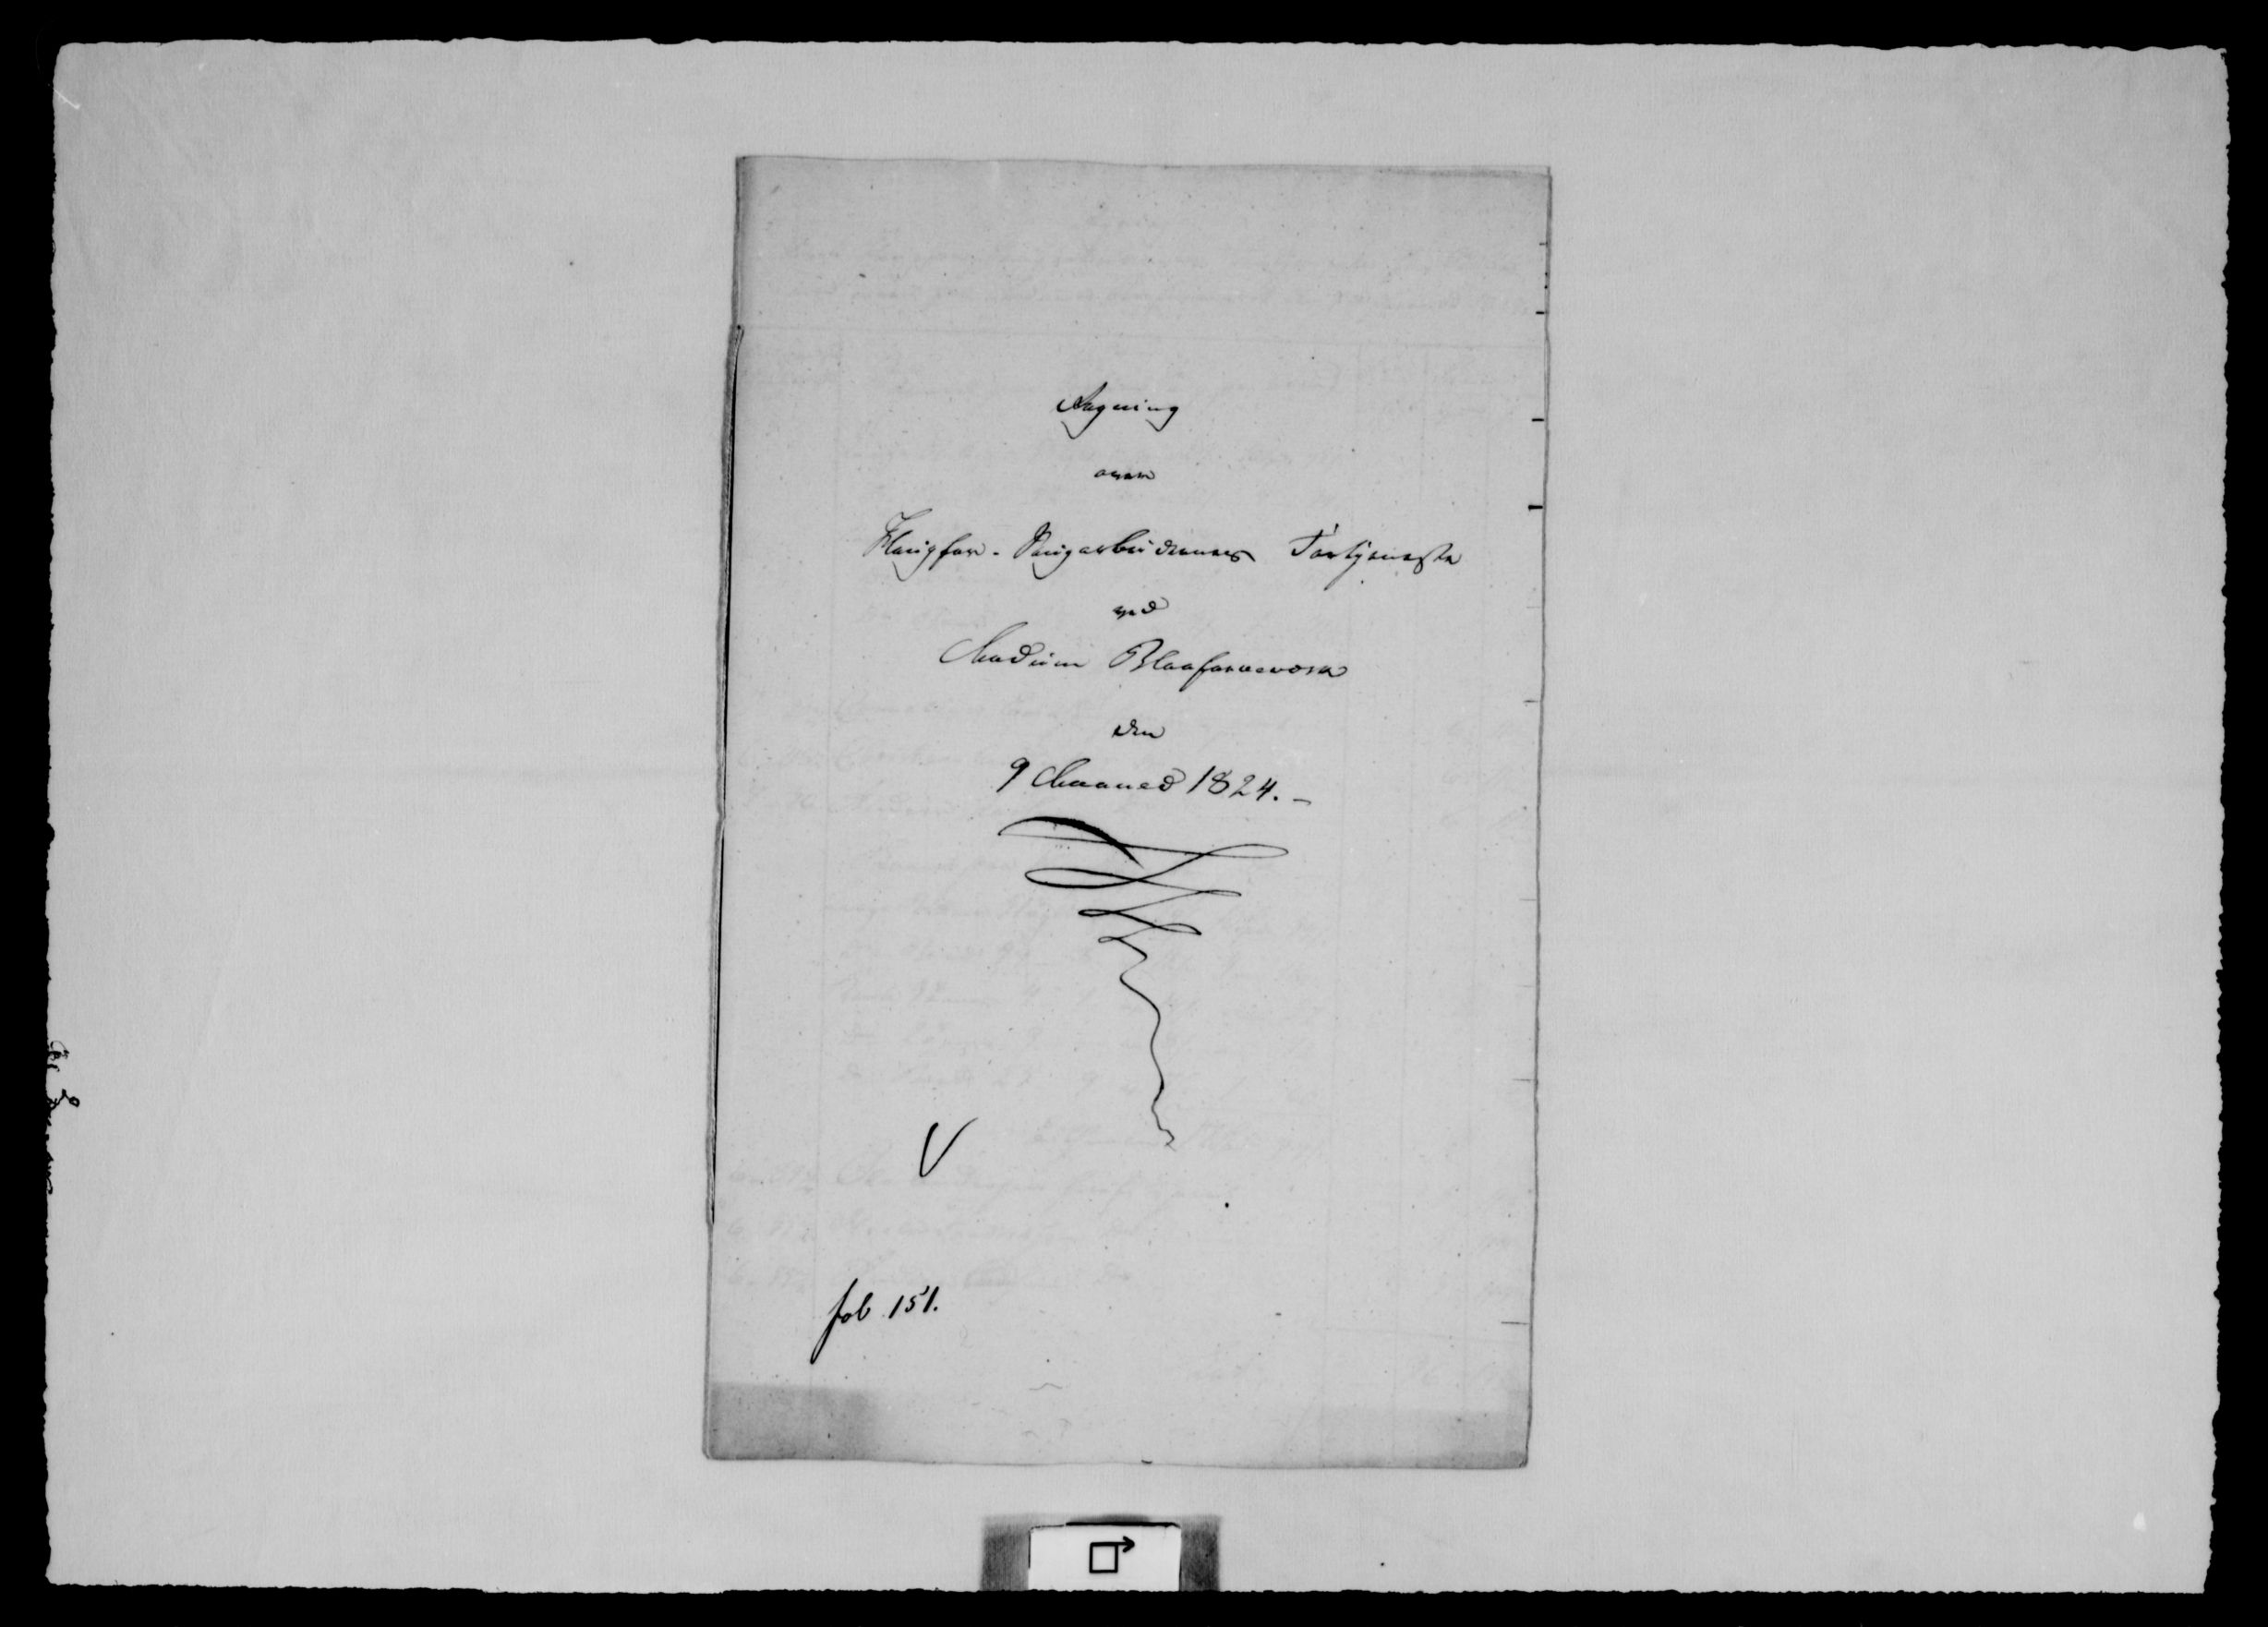 Regning
over
Haugfar. Røigarbeidernes Fortjeneste
ved
Modum Blaafarveværk
den
9 Maaned 1824. -
V
fol 151.